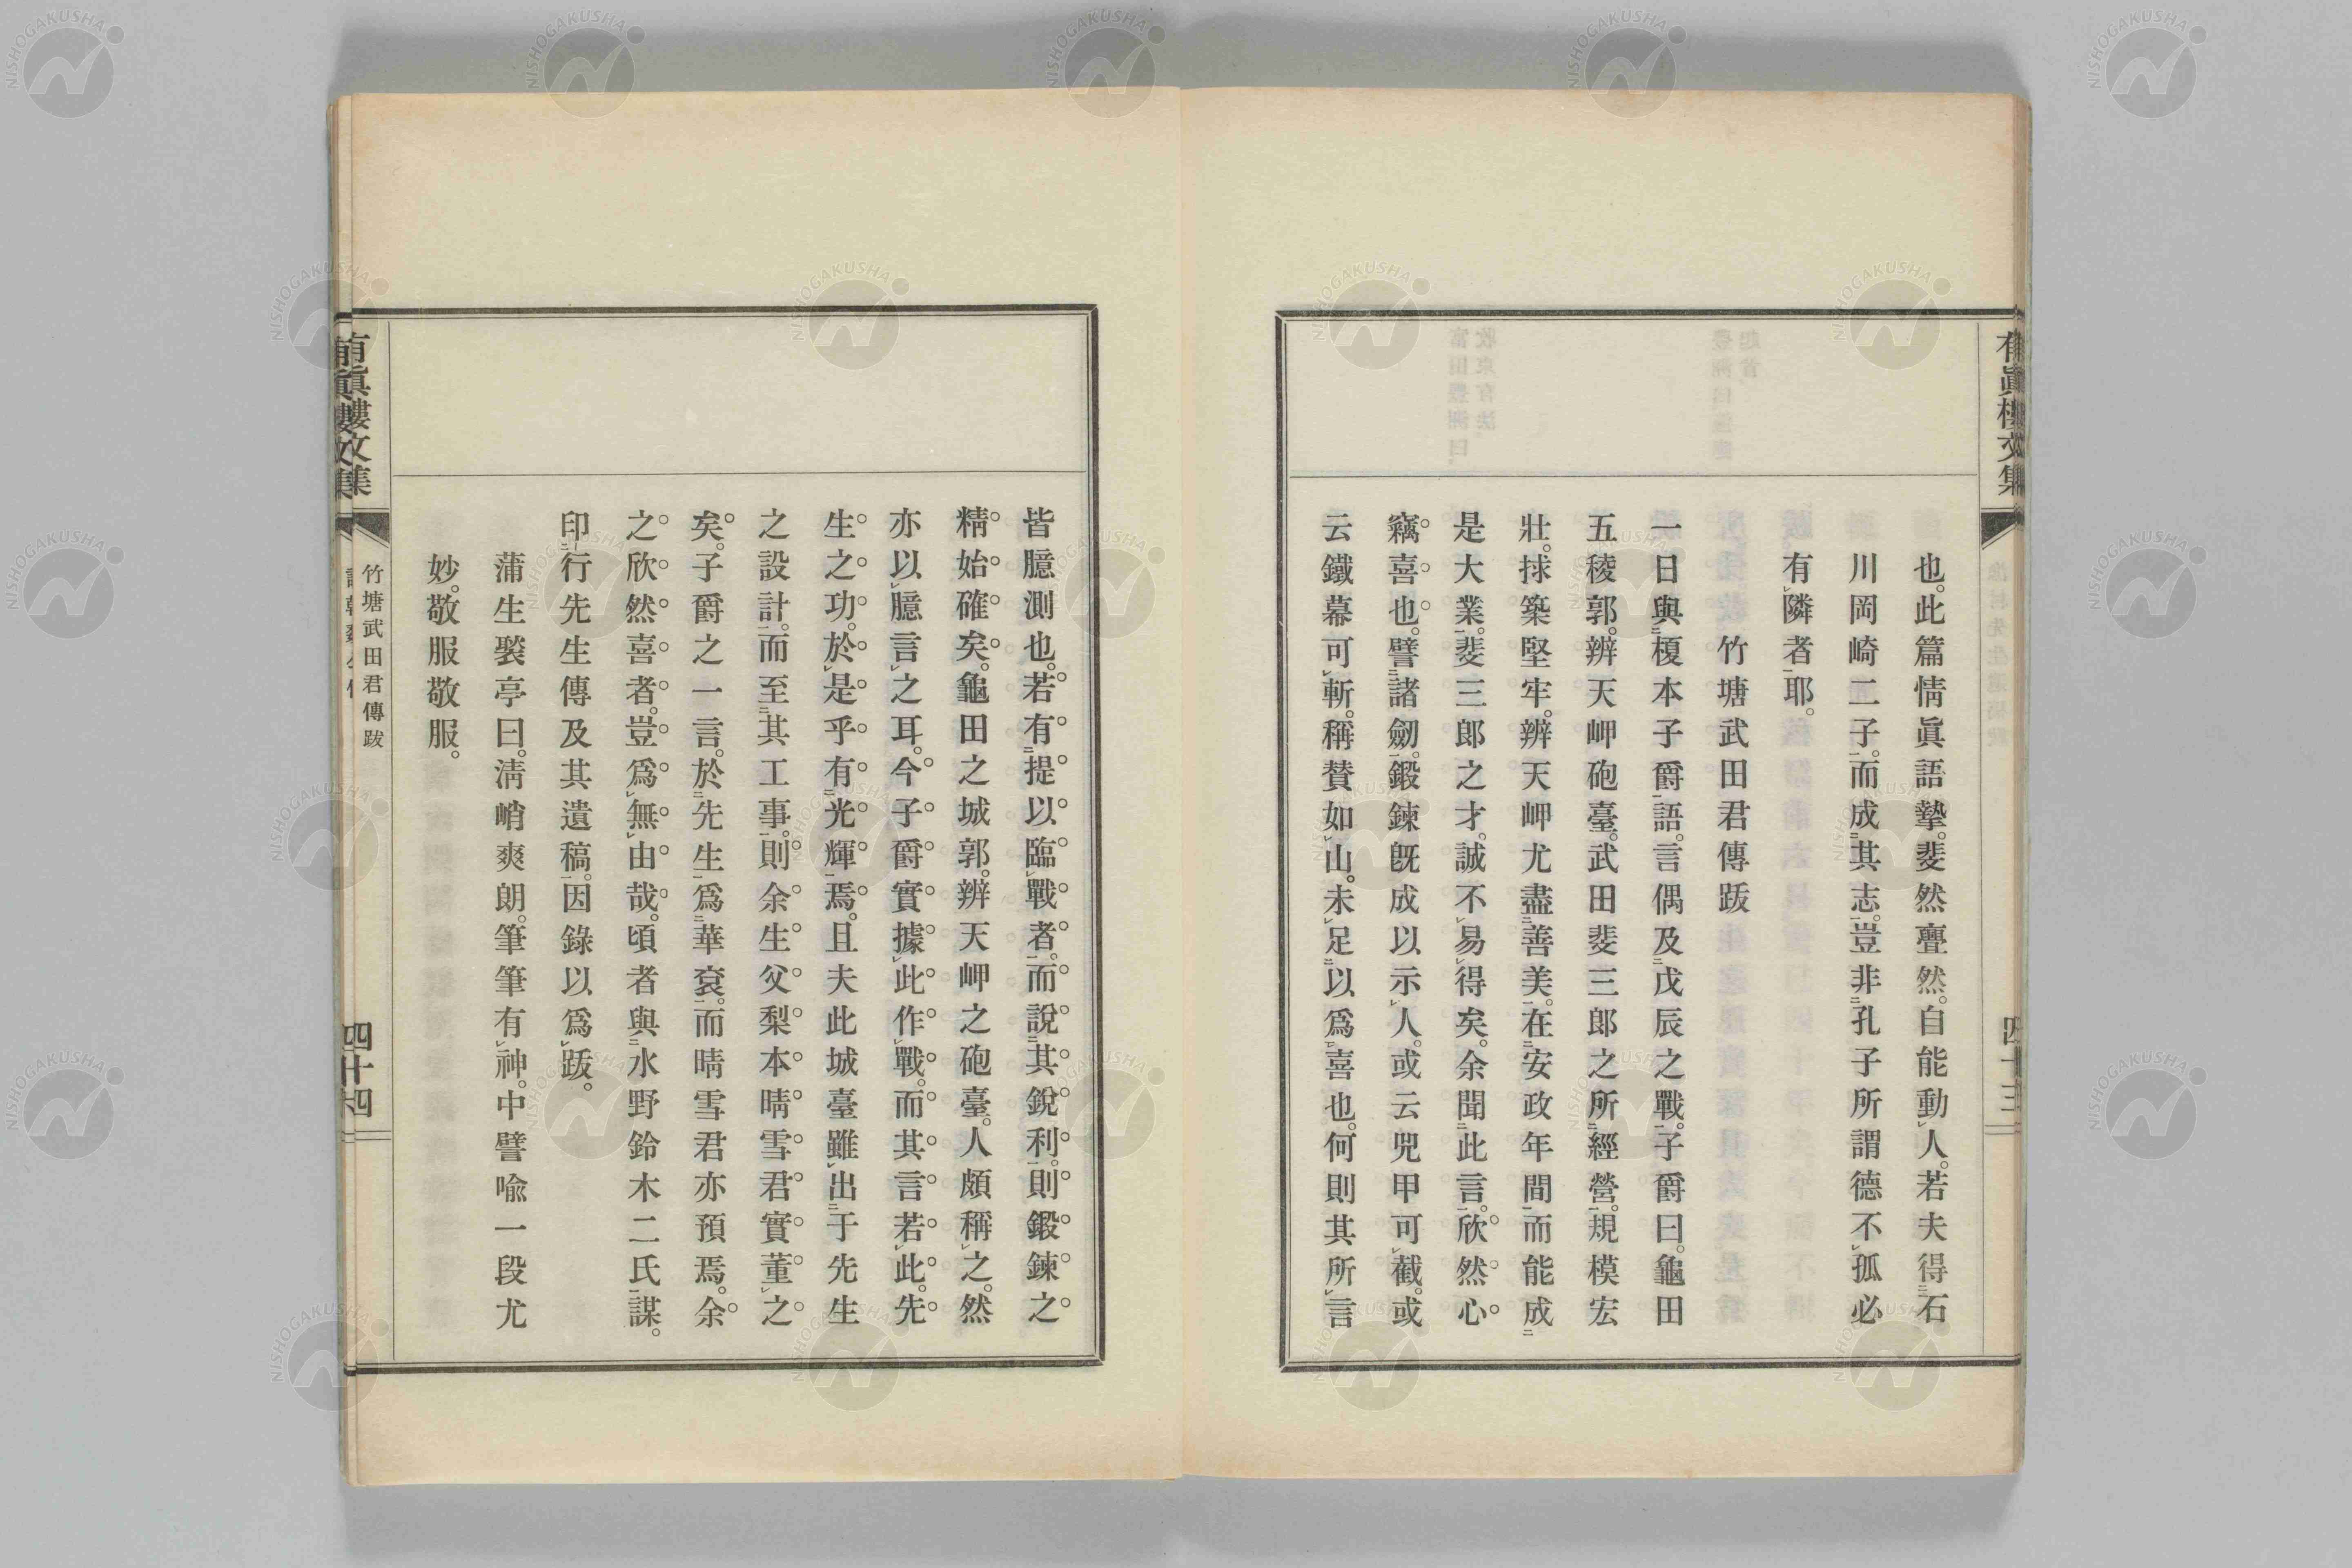 有眞樓文集
四十三
也。此篇情眞語摯。斐然亹然。自能動人。若夫得石
川岡崎二子。而成其志。豈非孔子所謂德不孤必
有隣者耶。
竹塘武田君傳跋
一日與榎本子爵語。言偶及戊辰之戰。子爵曰。龜田
五稜郭。辨天岬砲臺。武田斐三郎之所經營。規模宏
壯。捄築堅牢。辨天岬尤盡善美。在安政年間。而能成
是大業。斐三郎之才。誠不易得矣。余聞此言。欣然心
竊喜也。譬諸劒。鍛鍊旣成以示人。或云兕甲可截。或
云鐵幕可斬。稱賛如山。未足以爲喜也。何則其所言
皆臆測也。若有提以臨戰者。而說其銳利。則鍛鍊之
精始確矣。龜田之城郭。辨天岬之砲臺。人頗稱之。然
亦以臆言之耳。今子爵實據此作戰。而其言若此。先
生之功。於是乎有光輝焉。且夫此城臺雖出于先生
之設計。而至其工事。則余生父梨本晴雪君實董之
矣。子爵之一言。於先生爲華袞。而晴雪君亦預焉。余
之欣然喜者。豈爲無由哉。頃者與水野鈴木二氏謀。
印行先生傳及其遺稿。因錄以爲跋。
蒲生褧亭曰。淸峭爽朗。筆筆有神。中譬喩一段尤
妙。敬服敬服。
有眞樓文集
竹塘武田君傳跋
四十四
NISHOGAKUSHA